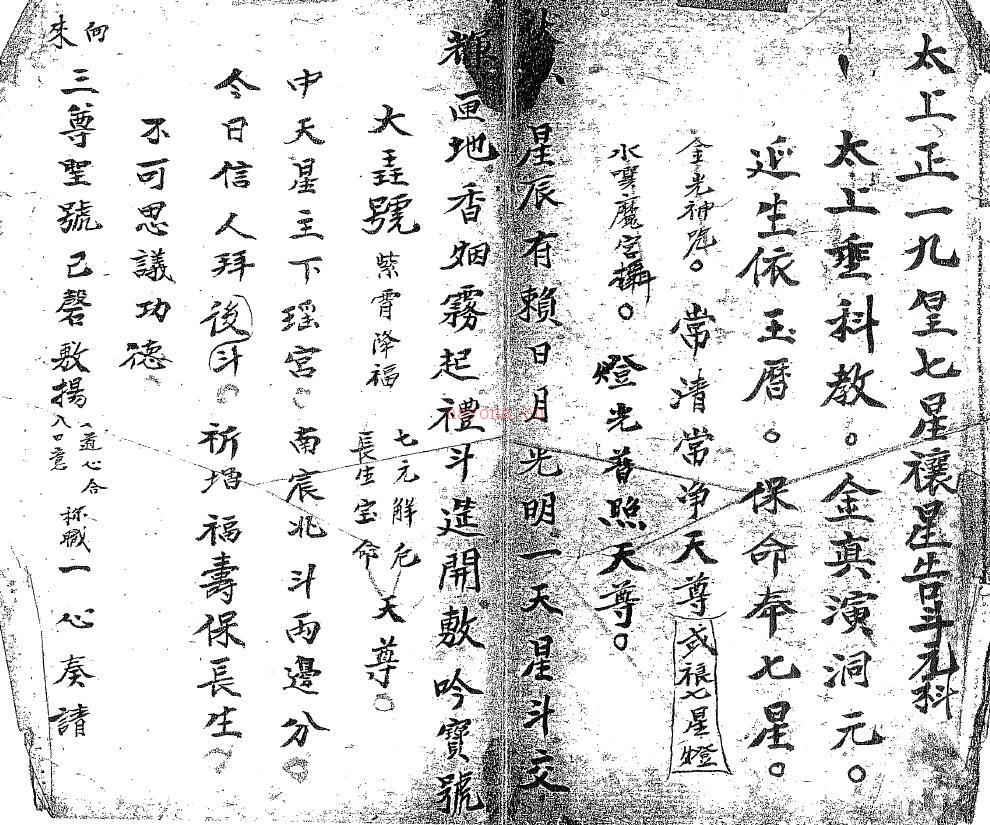 太上正一九皇七星禳星告斗元科
太上垂科教。金真演洞元。
延生依玉曆。保命奉七星。
金光神咒。常清常净天尊 或禳七星燈
水噀魔宫攝。燈光普照天尊。
星辰有賴日月光明一天星斗交
輝匝地香烟霧起禮斗筵開敷吟寶號
大聖號 紫霄降福 七元解危 長生宝命 天尊。
中天星主下瑶宮。南宸北斗两邊分。
今日信人拜後斗。祈增福壽保長生。
不可思議功德
向來
三尊聖號已磬敷揚 道心合 入口意 称職一心奏請